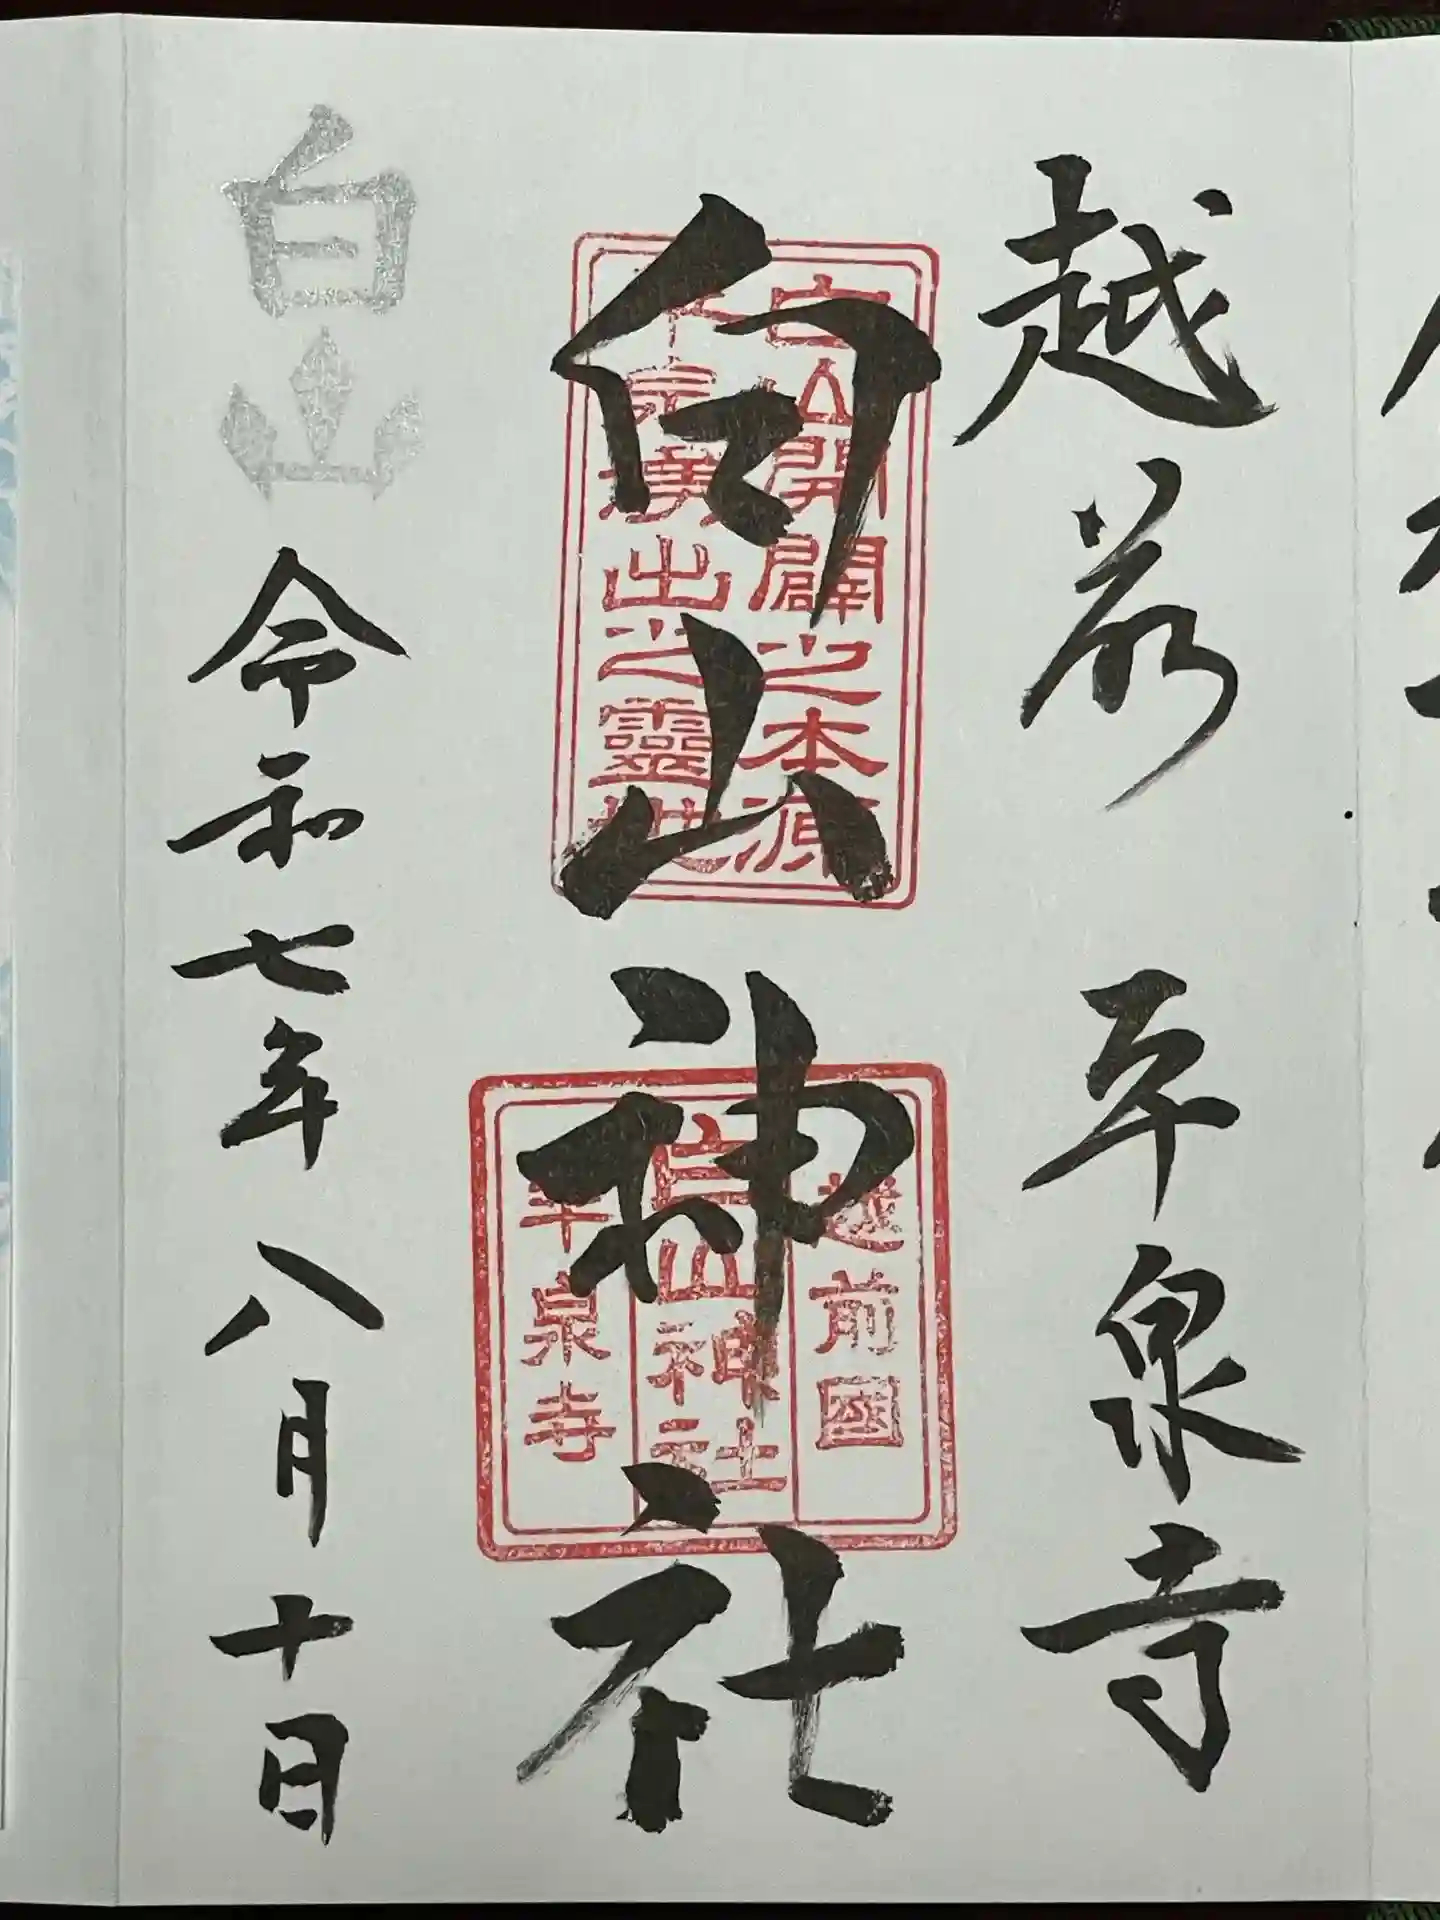 越前 平泉寺
白山神社
白山開闢之本源
平泉涌出之靈地
越前國
白山神社
平泉寺
白山
令和七年八月十日